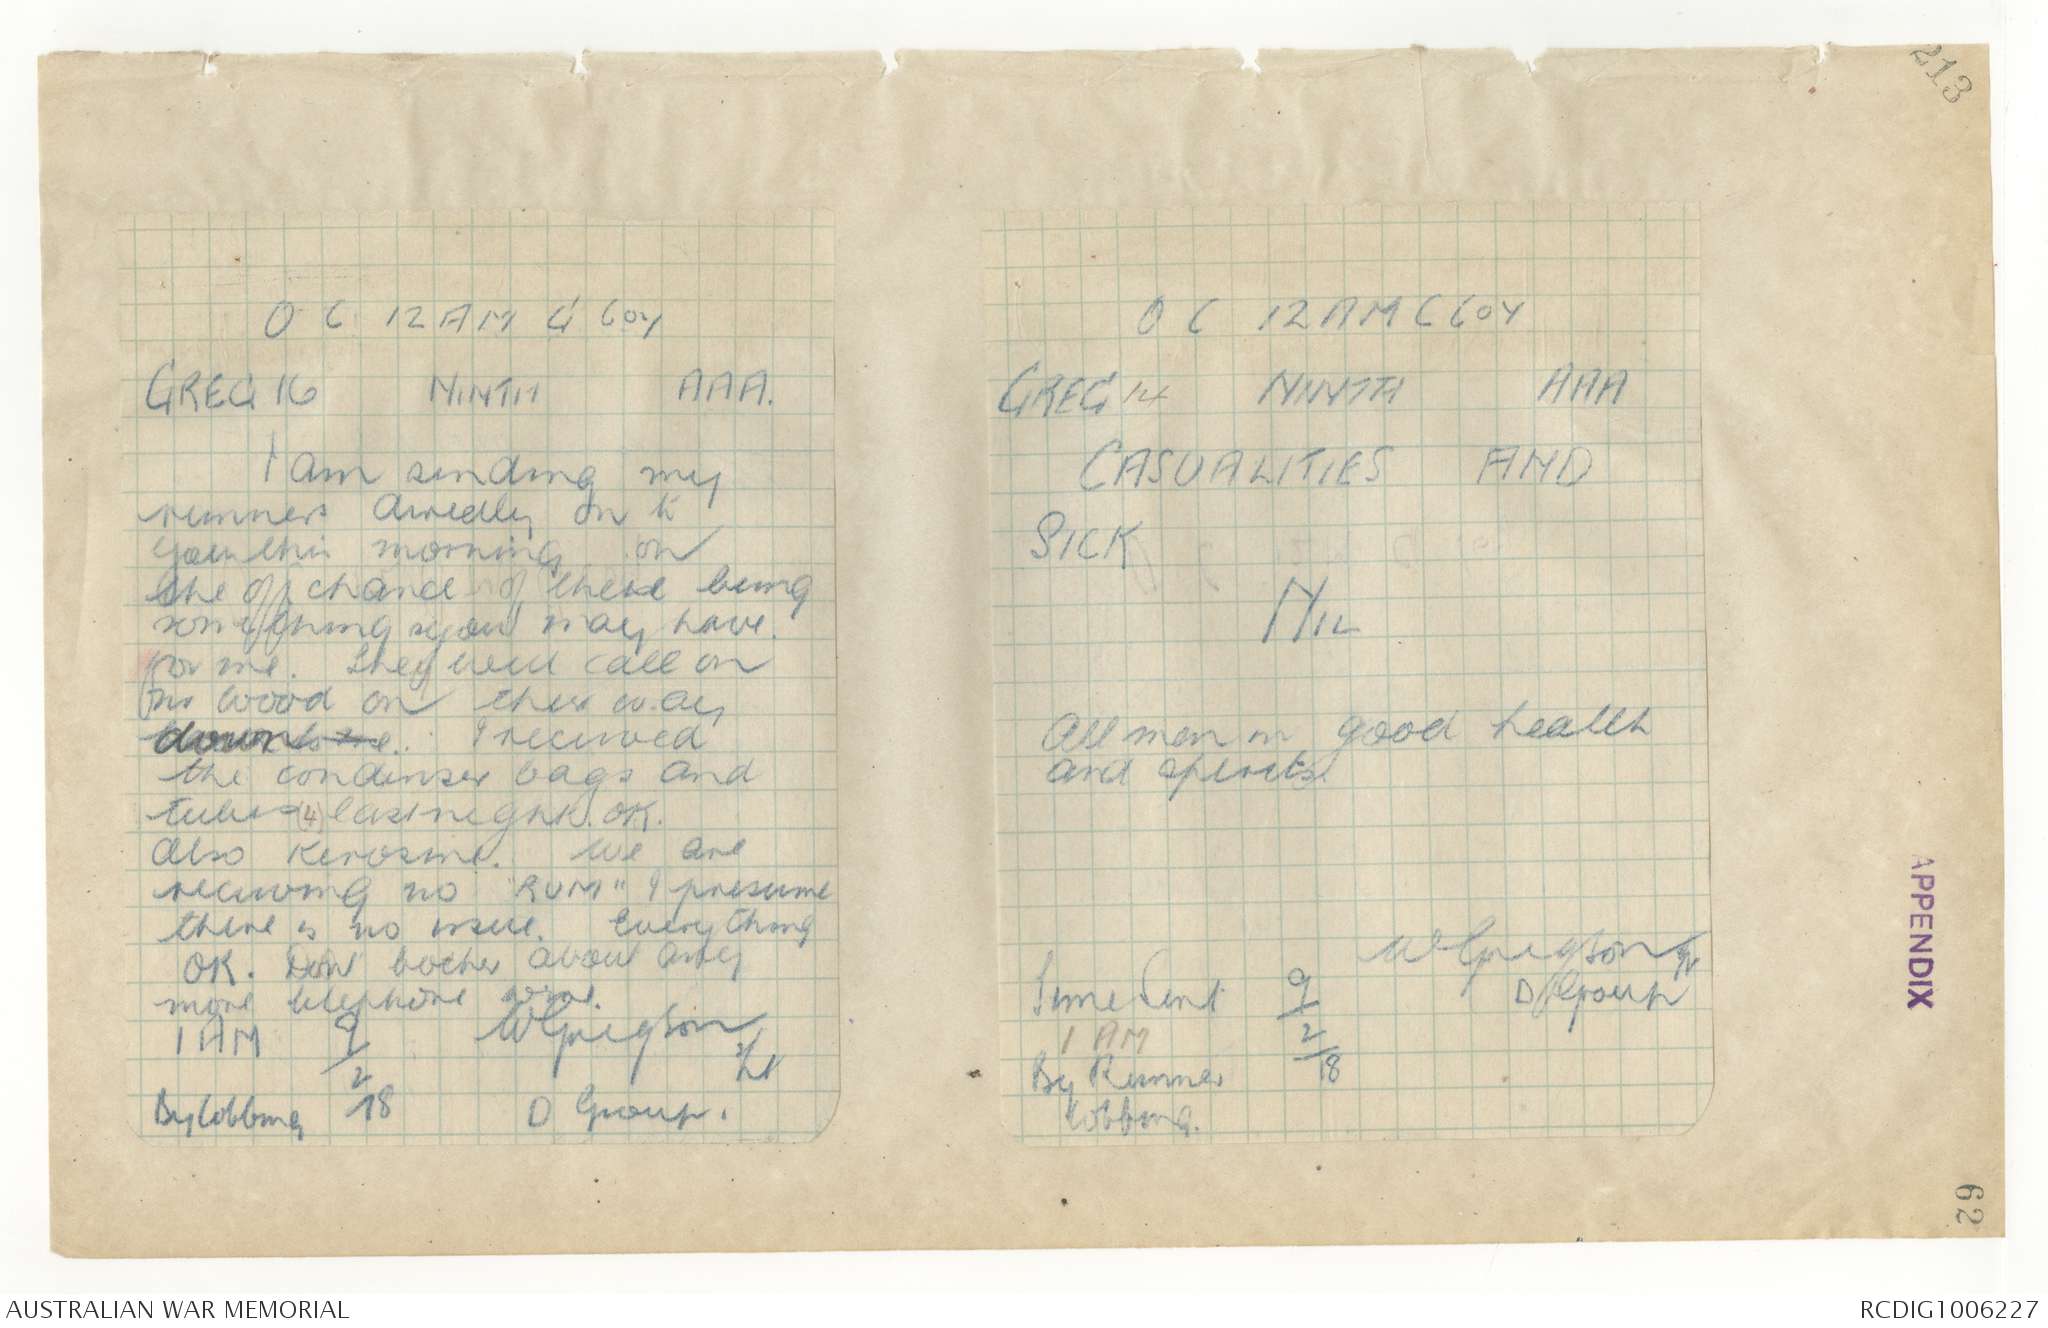 213
O C 12 A M G Coy
GREG 16 NINTH AAA.
I am sending my
runners direclty on to
you this morning on
the off chance of there being
something you may have
for me. They will call on
Mr Wood on their way
down. I received
the condenser bags and
tubes (4) last night. OK.
also kerosine. We are
receiving no "RUM" I presume
there is no issue. Everything
OK. Dont bother about any
more telephone wire.
1 AM 9/2/18 W Gregson 2/Lt
By Cobbing D Group.
O C 12 A M C Coy
GREG 14 NINTH AAA
CASUALITIES AND
SICK
NIL
All men in good health
and spirits
W Gregson 2/Lt
Time Sent 9/2/18 D Group
1 AM
By Runner
Cobbing.
APPENDIX
62
AUSTRALIAN WAR MEMORIAL
RCDIG1006227